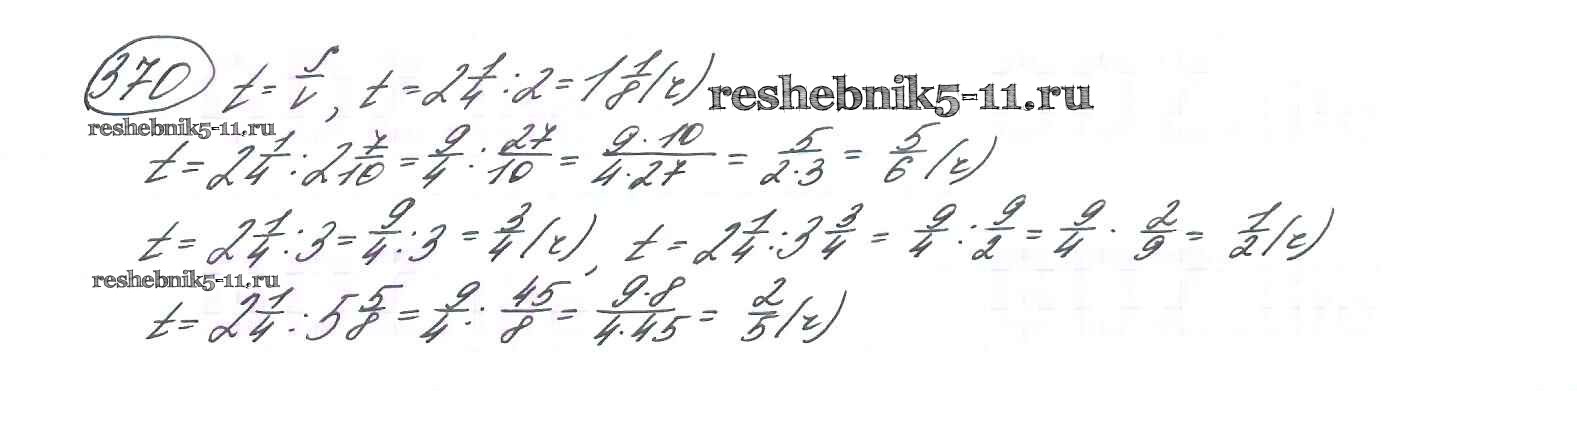 370 t = s/v, t = 2 1/4 : 2 = 1 1/8 (ч) reshebnik5-11.ru
reshebnik5-11.ru
t = 2 1/4 : 2 7/10 = 9/4 : 27/10 = 9·10/4·27 = 5/2·3 = 5/6 (ч)
t = 2 1/4 : 3 = 9/4 : 3 = 3/4 (ч), t = 2 1/4 : 3 3/4 = 9/4 : 9/2 = 9/4 · 2/9 = 1/2 (ч)
reshebnik5-11.ru
t = 2 1/4 : 5 5/8 = 9/4 : 45/8 = 9·8/4·45 = 2/5 (ч)